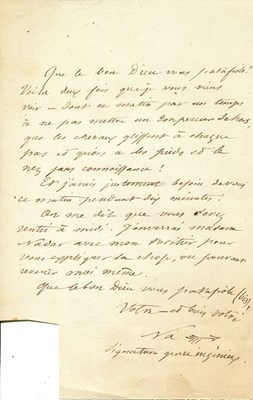 Que le bon Dieu vous patafiole!
Voilà deux fois que je vous viens
voir – dont ce matin par un temps
à ne pas mettre un Empereur dehors,
que les chevaux glissent à chaque
pas et qu'on a les pieds et le
nez sans connaissance!
Et j'avais justement besoin de vous
ce matin pendant dix minutes!
On me dit que vous serez
rentré à midi. J'enverrai madame
Nadar avec mon
vous expliquer la chose, ne pouvant
revenir moi même.
Que le bon Dieu vous patafiole (bis)!
Votre et bien vôtre
Na
signature